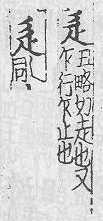 辵丑略切走也又
乍行乍止也
辵同